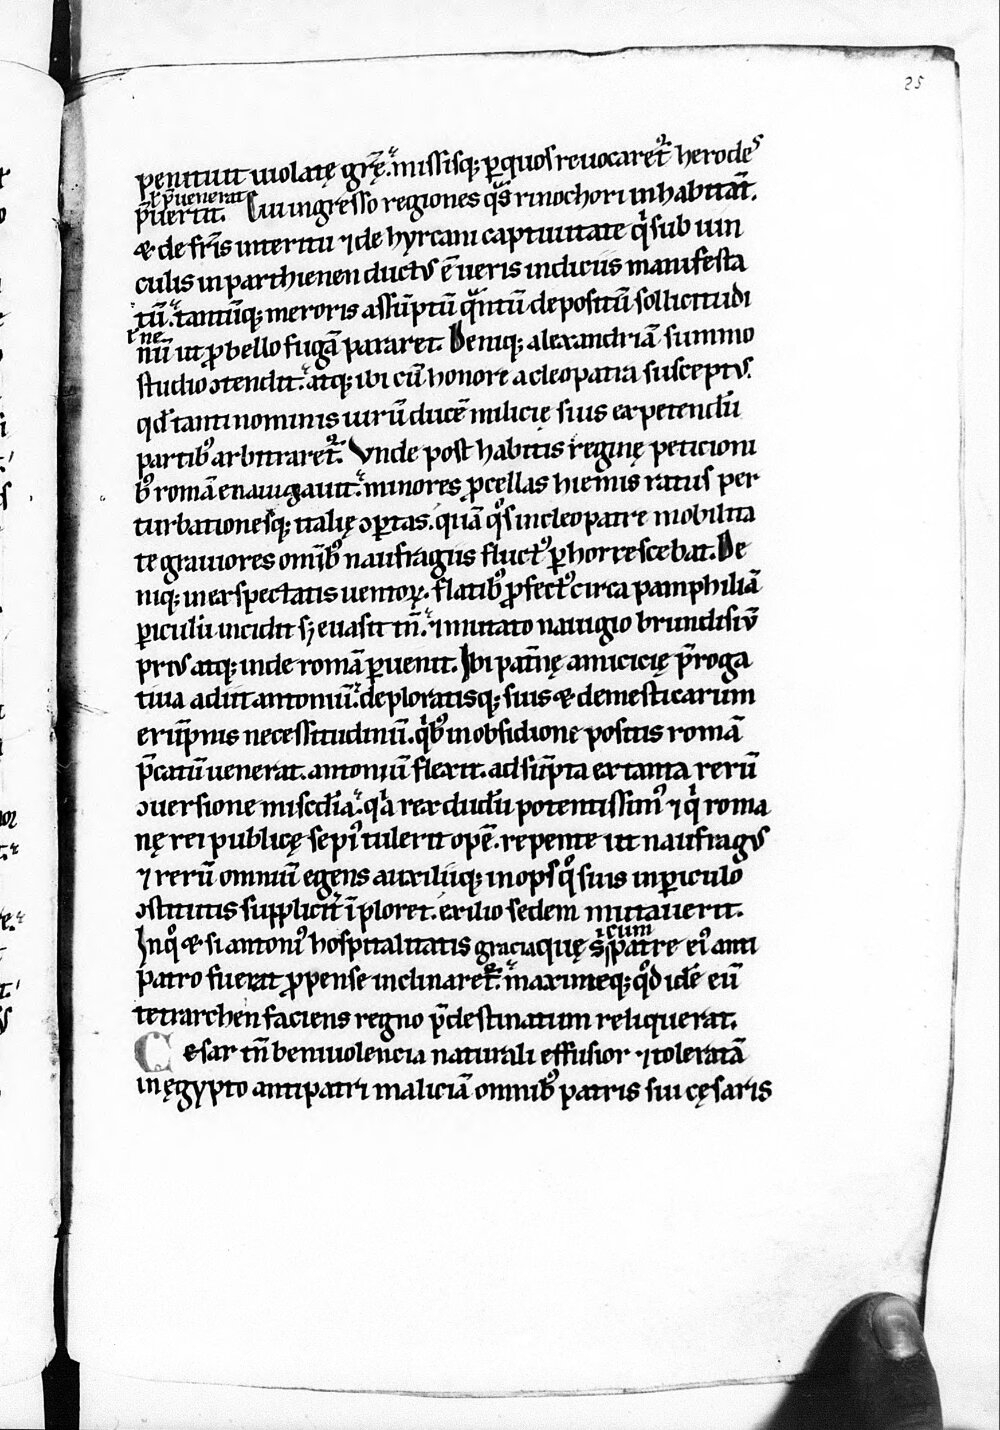 25
penituit uiolatę grȩ̄. missisq; ꝑquos reuocaret᷑ herodes
ł p̄uenerat
p̄uertit. Cui ingresso regiones qͣs rinochori inhabitāt.
& de fr̄is interitu ⁊ de hyrcani captiuitate qͥ sub uin
culis in parthienen ductus ē ueris indiciis manifesta
tū. tantūq; meroris assūptū qͣntū depositū sollicitudi
ł ne
nū ut ꝓ bello fugā pararet. Deniq; alexandriā summo
studio ↄtendit. atq; ibi cū honore a cleopatra susceptus.
qd̄ tanti nominis uirū ducē milicię suis expetendū
partibꝰ arbitraret᷑. Vnde post habitis reginę peticioni
bꝰ romā enauigauit. minores ꝓcellas hiemis ratus per
turbationesq; italię ↄꝑtas. quā qͦs in cleopatre mobilita
te grauiores omībꝰ naufragiis fluctꝰ ꝑhorrescebat. De
niq; inexspectatis uentoꝝ flatibꝰ ꝓfectꝰ circa pamphiliā
ꝑiculū incidit sꝫ euasit tn̄. ⁊ mutato nauigio brundisiū
prius atq; inde romā ꝑuenit. Ibi pat̄nę amicicię p̄roga
tiua adiit antoniū. deploratisq; suis & demesticarum
erūpnis necessitudinū. qͥbꝰ in obsidione positis romā
p̄catū uenerat. antoniū flexit. ad sūpta ex tanta rerū
ↄuersione misc̄dia. qͣ rex dudū potentissimꝰ ⁊ qͥ roma
nę rei publicę sepiꝰ tulerit opē. repente ut naufragus
⁊ rerū omniū egens auxiliiq; inops qͦ suis in ꝑiculo
ↄstitutis supplicit᷑ īploret. exilio sedem mutauerit.
ł cum
In qͦ & si antoniꝰ hospitalitatis graciaquę s̄ patre eiꝰ anti
patro fuerat ꝓpense inclinaret᷑. maximeq; qͦd idē eū
tetrarchen faciens regno p̄destinatum reliquerat.
Cesar tn̄ beniuolencia naturali effusior ⁊ toleratā
in ęgypto antipatri maliciā omnibꝰ patris sui cęsaris